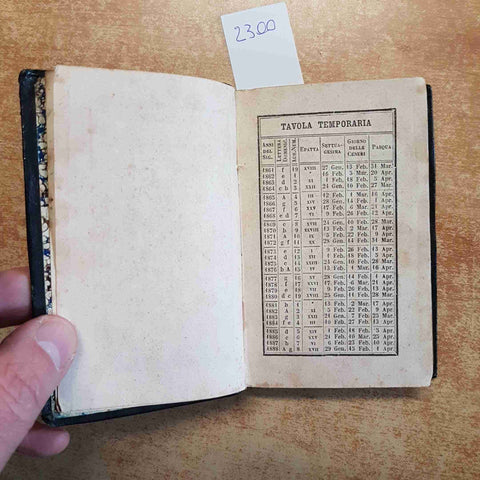 2300
TAVOLA TEMPORARIA
ANNI DEL SIG. LETTERA DOMENIC. AUR. NUM. EPATTA SETTUAGESIMA GIORNO DELLE CENERI PASQUA
1861 f 19 XVIII 27 Gen. 13 Feb. 31 Mar.
1862 e 1 * 16 Feb. 5 Mar. 20 Apr.
1863 d 2 XI 1 Feb. 18 Feb. 5 Apr.
1864 c b 3 XXII 24 Gen. 10 Feb. 27 Mar.
1865 A 4 III 12 Feb. 1 Mar. 16 Apr.
1866 g 5 XIV 28 Gen. 14 Feb. 1 Apr.
1867 f 6 XXV 17 Feb. 6 Mar. 21 Apr.
1868 e d 7 VI 9 Feb. 26 Feb. 12 Apr.
1869 c 8 XVII 24 Gen. 10 Feb. 28 Mar.
1870 b 9 XXVIII 13 Feb. 2 Mar. 17 Apr.
1871 A 10 IX 5 Feb. 22 Feb. 9 Apr.
1872 g f 11 XX 28 Gen. 14 Feb. 31 Mar.
1873 e 12 I 9 Feb. 26 Feb. 13 Apr.
1874 d 13 XII 1 Feb. 18 Feb. 5 Apr.
1875 c 14 XXIII 24 Gen. 10 Feb. 28 Mar.
1876 b A 15 IV 13 Feb. 1 Mar. 16 Apr.
1877 g 16 XV 28 Gen. 14 Feb. 1 Apr.
1878 f 17 XXVI 17 Feb. 6 Mar. 21 Apr.
1879 e 18 VII 9 Feb. 26 Feb. 13 Apr.
1880 d c 19 XVIII 25 Gen. 11 Feb. 28 Mar.
1881 b 1 * 13 Feb. 2 Mar. 17 Apr.
1882 A 2 XI 5 Feb. 22 Feb. 9 Apr.
1883 g 3 XXII 21 Gen. 7 Feb. 25 Mar.
1884 f e 4 III 10 Feb. 27 Feb. 13 Apr.
1885 d 5 XIV 1 Feb. 18 Feb. 5 Apr.
1886 c 6 XXV 21 Feb. 10 Mar. 25 Apr.
1887 b 7 VI 6 Feb. 23 Feb. 10 Apr.
1888 A g 8 XVII 29 Gen. 15 Feb. 1 Apr.